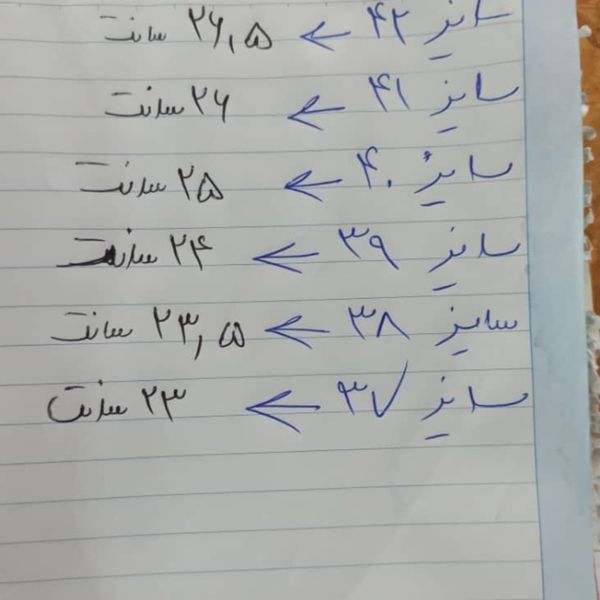 سایز ۴۲ ← ۲۶,۵ سانت
سایز ۴۱ ← ۲۶ سانت
سایز ۴۰ ← ۲۵ سانت
سایز ۳۹ ← ۲۴ سانت
سایز ۳۸ ← ۲۳,۵ سانت
سایز ۳۷ ← ۲۳ سانت